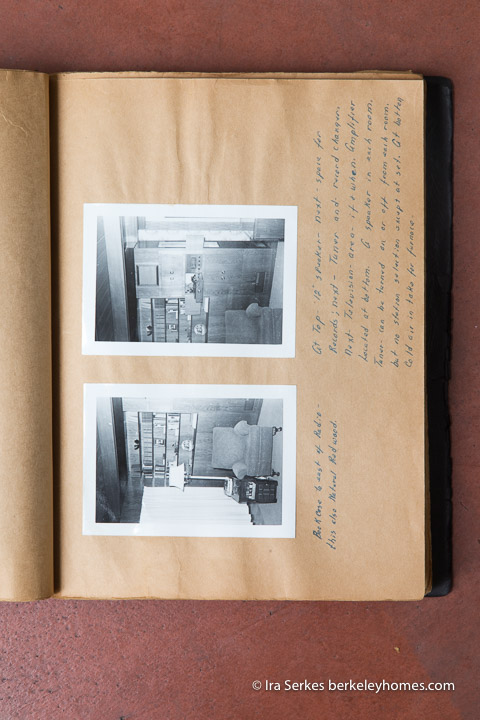 At Top - 12" speaker - next - space for
Records; next - Tuner and record changer.
Next Television - area - if & when. Amplifier
located at bottom. A speaker in each room.
Tuner can be turned on or off from each room.
but no station selection except at set. At bottom
Cold air in take for furnace.
Bookcase to east of Radio -
this also Natural Redwood.
© Ira Serkes berkeleyhomes.com